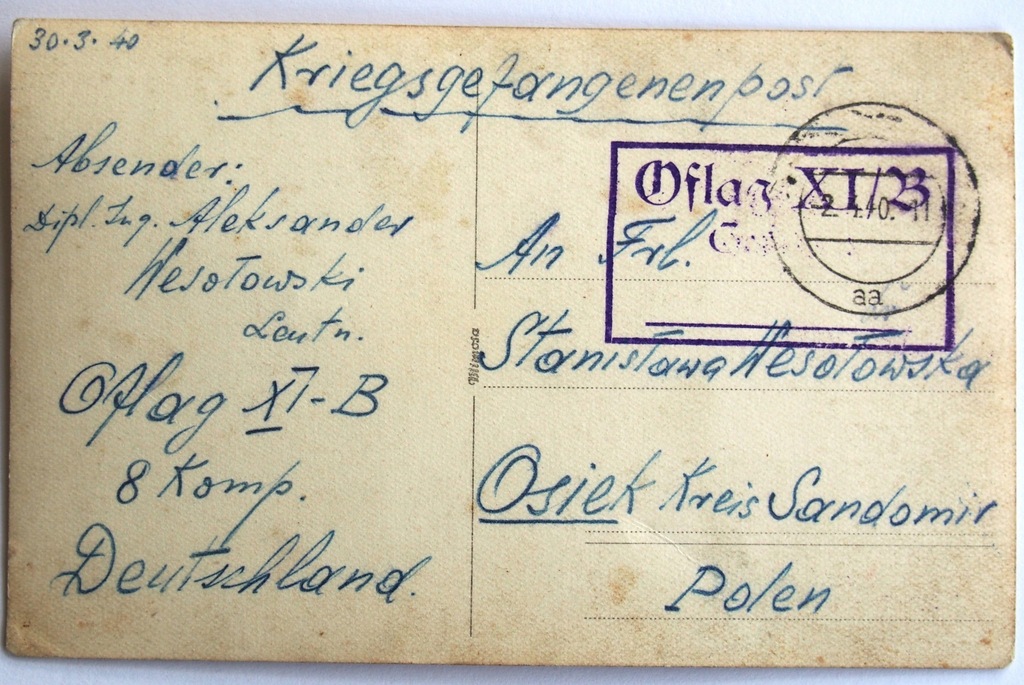 30.3.40
Kriegsgefangenenpost
Absender:
Dipl. Ing. Aleksander
Wesołowski
Leutn.
Oflag XI-B
8 Komp.
Deutschland.
Oflag XI/B
2.4.40. 11
aa
An Frl.
Stanisława Wesołowska
Osiek Kreis Sandomir
Polen
Mimosa